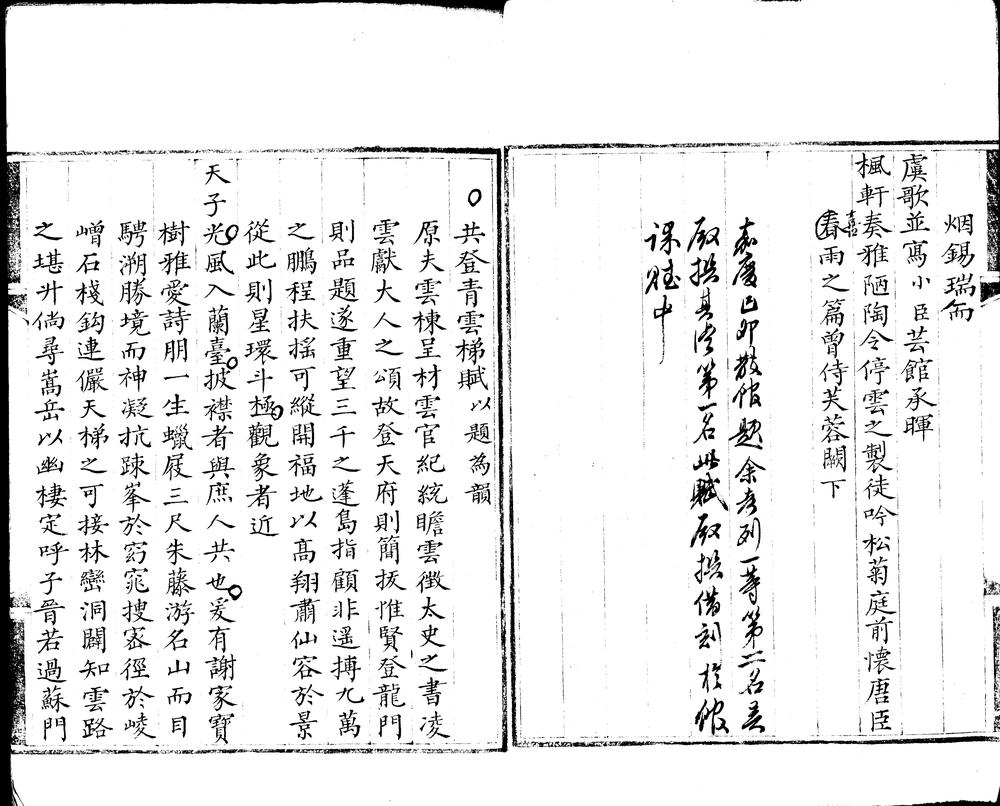 烟錫瑞而
虞歌並寫小臣芸館承暉
楓軒奏雅陋陶令停雲之製徒吟松菊庭前懷唐臣
喜
春雨之篇曾侍芙蓉闕下
嘉慶己卯散館題余考列一等第二名吳
殿撰其濬第一名此賦殿撰借刻於館
課賦中
共登青雲梯賦以題為韻
原夫雲棟呈材雲官紀統瞻雲徵太史之書凌
雲獻大人之頌故登天府則簡拔惟賢登龍門
則品題遂重望三千之蓬島指顧非遥搏九萬
之鵬程扶摇可縱開福地以高翔肅仙容於景
從此則星環斗極觀象者近
天子光風入蘭臺披襟者與庶人共也爰有謝家寶
樹雅愛詩朋一生蠟屐三尺朱藤游名山而目
騁溯勝境而神凝抗踈峯於窈窕搜宻徑於崚
嶒石棧鈎連儼天梯之可接林巒洞闢知雲路
之堪升倘尋嵩岳以幽棲定呼子晉若過蘇門